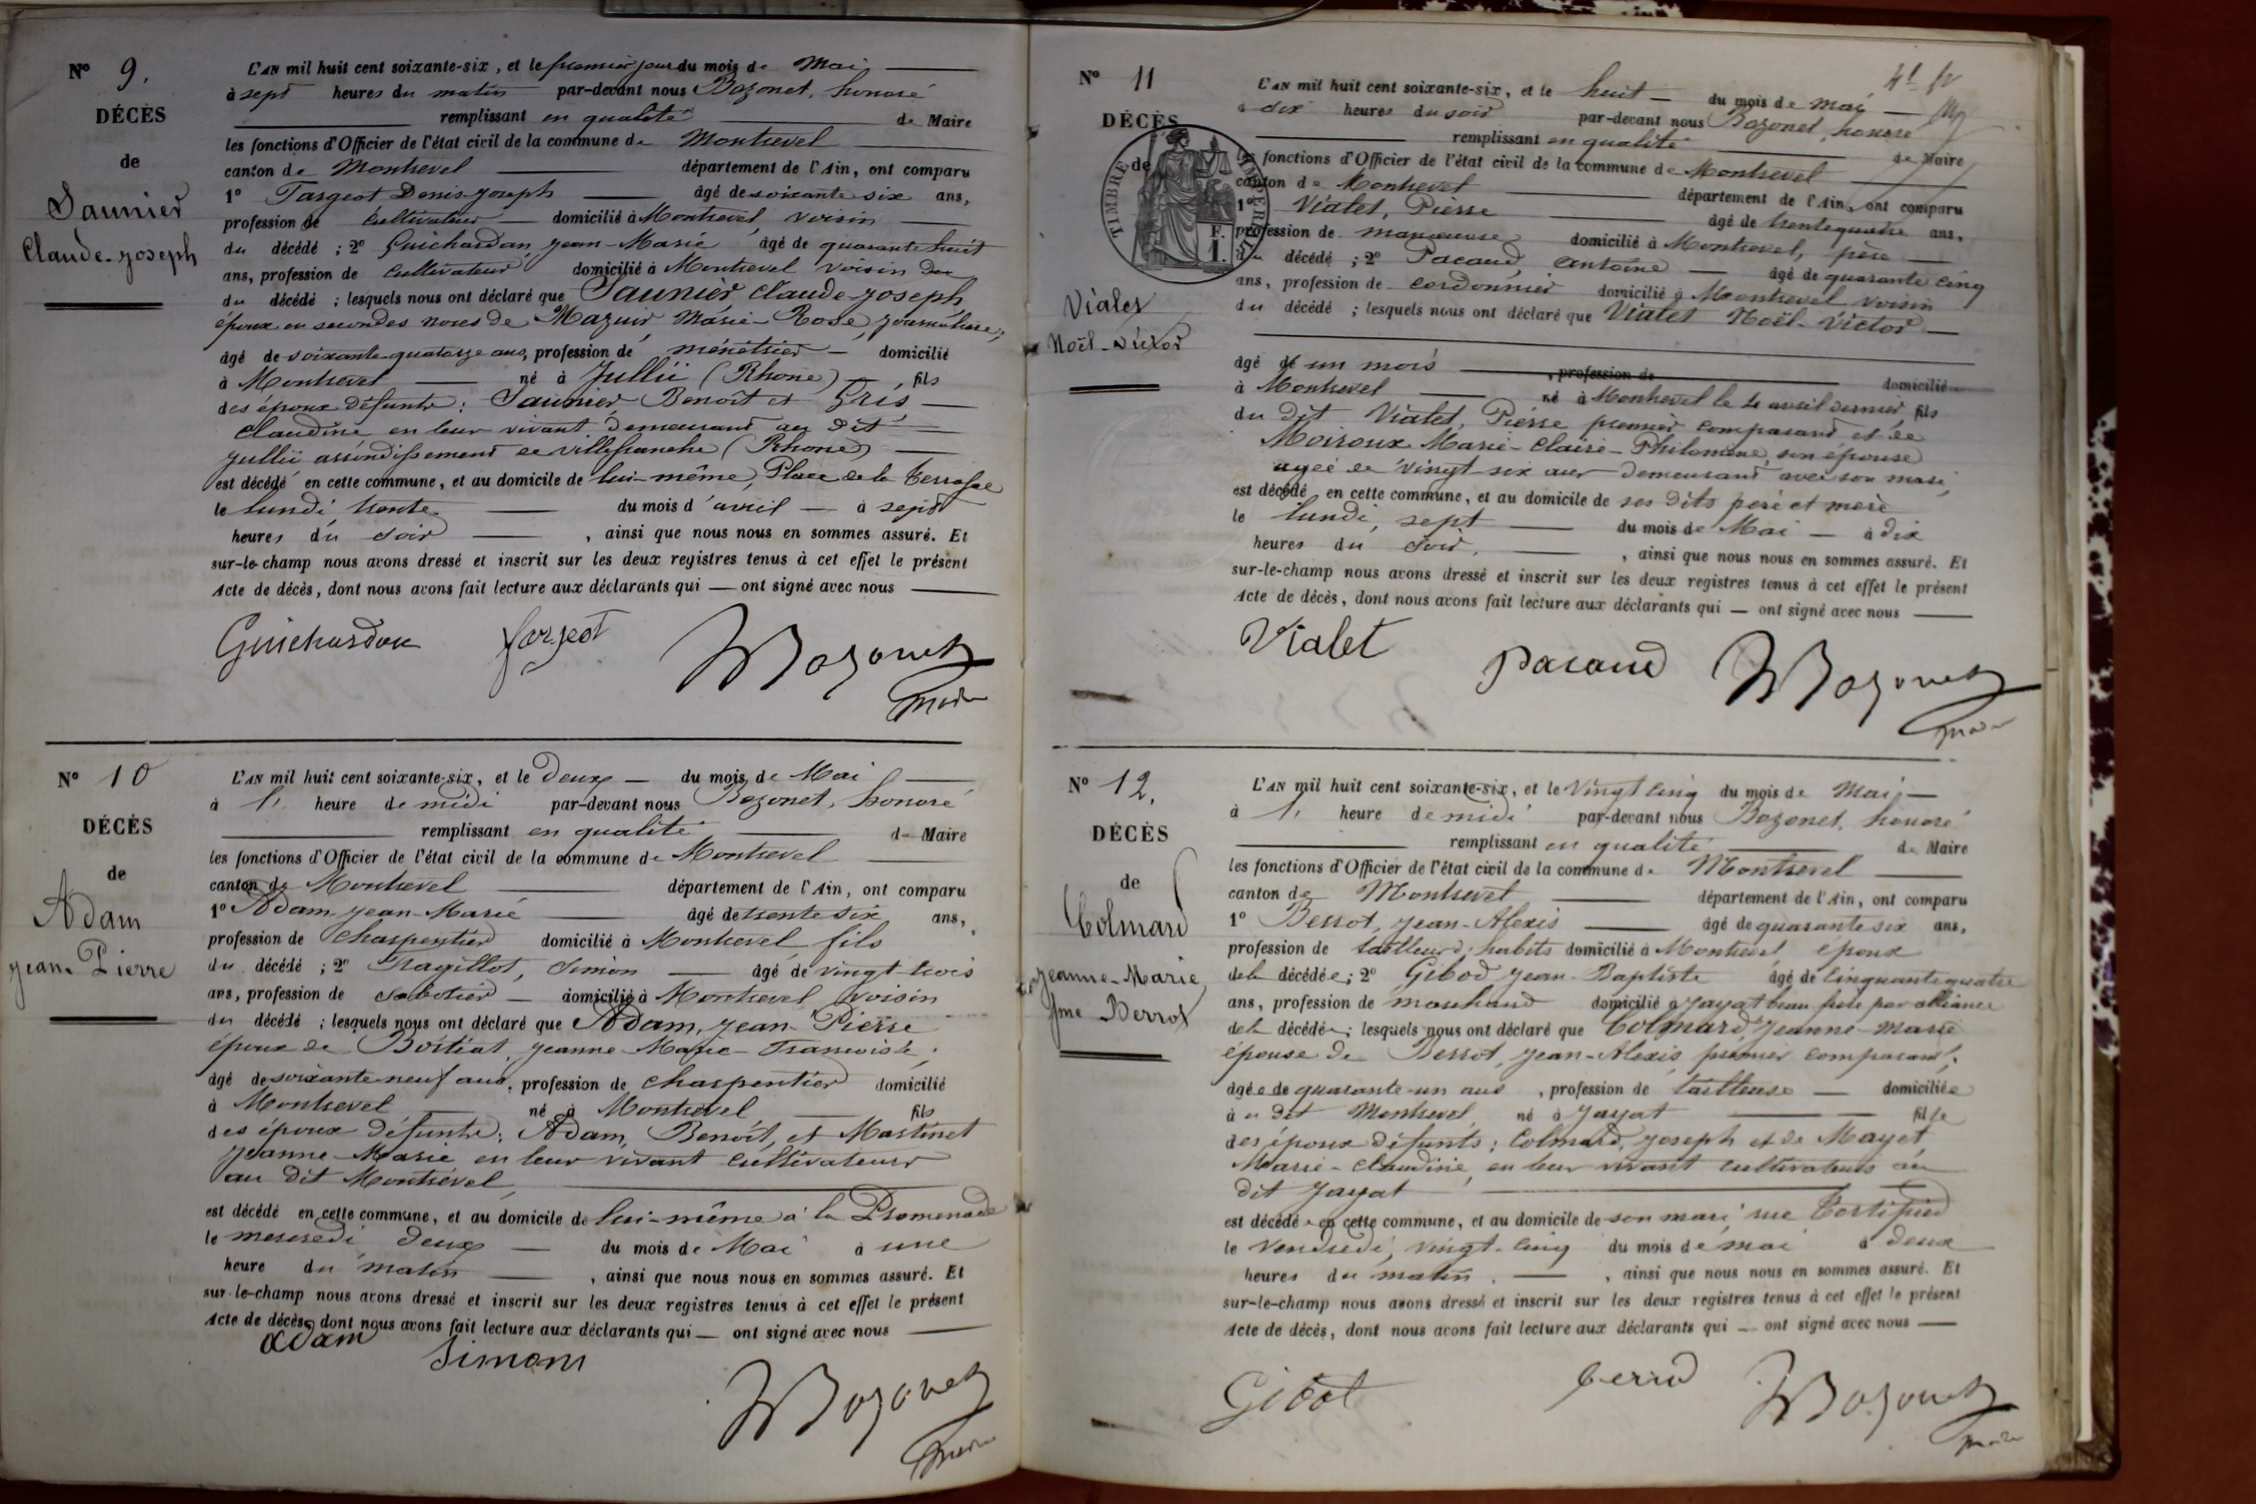 N° 9.
DÉCÈS
de
Saunier
Claude-Joseph
L'AN mil huit cent soixante-six, et le premier jour du mois de Mai
à sept heures du matin par-devant nous Bozonet, honoré
remplissant en qualité de Maire
les fonctions d'Officier de l'état civil de la commune de Montrevel
canton de Montrevel département de l'Ain, ont comparu
1° Fargeot Denis-Joseph âgé de soixante six ans,
profession de Cultivateur domicilié à Montrevel, voisin
du décédé ; 2° Guichardan, Jean-Marie âgé de quarante huit
ans, profession de Cultivateur domicilié à Montrevel voisin du
du décédé ; lesquels nous ont déclaré que Saunier, Claude-Joseph,
époux en secondes noces de Mazuir Marie-Rose, journalière,
âgé de soixante-quatorze ans, profession de ménétrier domicilié
à Montrevel né à Jullié (Rhône) fils
des époux défunts : Saunier Benoît et Gris
Claudine en leur vivant demeurant au dit
Jullié arrondissement de Villefranche (Rhône)
est décédé en cette commune, et au domicile de lui-même, Place de la Terrasse
le lundi trente du mois d'avril à sept
heures du soir, ainsi que nous nous en sommes assuré. Et
sur-le-champ nous avons dressé et inscrit sur les deux registres tenus à cet effet le présent
Acte de décès, dont nous avons fait lecture aux déclarants qui ont signé avec nous
Guichardan fargeot Bozonet
maire
N° 10
DÉCÈS
de
Adam
Jean-Pierre
L'AN mil huit cent soixante-six, et le deux du mois de Mai
à 1, heure de midi par-devant nous Bozonet, honoré
remplissant en qualité de Maire
les fonctions d'Officier de l'état civil de la commune de Montrevel
canton de Montrevel département de l'Ain, ont comparu
1° Adam Jean-Marie âgé de trente six ans,
profession de Charpentier domicilié à Montrevel fils
du décédé ; 2° Fragillot, Simon âgé de vingt-trois
ans, profession de sabotier domicilié à Montrevel voisin
du décédé ; lesquels nous ont déclaré que Adam, Jean-Pierre
époux de Jeanne-Marie-Françoise,
âgé de soixante-neuf ans, profession de charpentier domicilié
à Montrevel né à Montrevel fils
des époux défunts : Adam, Benoît, et Martinet
Jeanne-Marie en leur vivant cultivateurs
au dit Montrevel,
est décédé en cette commune, et au domicile de lui-même à la Promenade
le mercredi deux du mois de Mai à une
heure du matin, ainsi que nous nous en sommes assuré. Et
sur-le-champ nous avons dressé et inscrit sur les deux registres tenus à cet effet le présent
Acte de décès, dont nous avons fait lecture aux déclarants qui ont signé avec nous
adam Simon
Bozonet
maire
N° 11
DÉCÈS
de
TIMBRE IMPÉRIAL
F.
1.
Vialet
Noël-Victor
L'AN mil huit cent soixante-six, et le huit du mois de Mai
à dix heures du soir par-devant nous Bozonet, honoré
remplissant en qualité de Maire
les fonctions d'Officier de l'état civil de la commune de Montrevel
canton de Montrevel département de l'Ain, ont comparu
1° Vialet, Pierre âgé de trentequatre ans,
profession de manoeuvre domicilié à Montrevel, père
du décédé ; 2° Pacaud, Antoine âgé de quarante cinq
ans, profession de cordonnier domicilié à Montrevel voisin
du décédé ; lesquels nous ont déclaré que Vialet Noël-Victor
âgé de un mois, profession de domicilié
à Montrevel né à Montrevel le 4 avril dernier, fils
du dit Vialet, Pierre premier comparant et de
Moiroux Marie-Claire-Philomène, son épouse
agée de vingt-six ans demeurant avec son mari,
est décédé en cette commune, et au domicile de ses dits père et mère
le lundi, sept du mois de Mai à dix
heures du soir, ainsi que nous nous en sommes assuré. Et
sur-le-champ nous avons dressé et inscrit sur les deux registres tenus à cet effet le présent
Acte de décès, dont nous avons fait lecture aux déclarants qui ont signé avec nous
Vialet pacaud Bozonet
maire
N° 12.
DÉCÈS
de
Colmard
Jeanne-Marie
fme Berrot
L'AN mil huit cent soixante-six, et le Vingt cinq du mois de Mai
à 1, heure de midi par-devant nous Bozonet, honoré
remplissant en qualité de Maire
les fonctions d'Officier de l'état civil de la commune de Montrevel
canton de Montrevel département de l'Ain, ont comparu
1° Berrot, Jean-Alexis âgé de quarante six ans,
profession de tailleur d'habits domicilié à Montrevel époux
de la décédée ; 2° Gibod Jean-Baptiste âgé de Cinquante quatre
ans, profession de marchand domicilié à Jayat beau frère par alliance
de la décédée ; lesquels nous ont déclaré que Colmard Jeanne-Marie
épouse de Berrot, Jean-Alexis premier comparant,
âgée de quarante-un ans, profession de tailleuse domiciliée
à u dit Montrevel, né à Jayat fille
des époux défunts ; Colmard, Joseph et de Mayet,
Marie-Claudine, en leur vivant cultivateurs au
dit Jayat
est décédée en cette commune, et au domicile de son mari rue
le Vendredi, vingt-cinq du mois de mai à deux
heures du matin, ainsi que nous nous en sommes assuré. Et
sur-le-champ nous avons dressé et inscrit sur les deux registres tenus à cet effet le présent
Acte de décès, dont nous avons fait lecture aux déclarants qui ont signé avec nous
Gibot Bozonet
maire